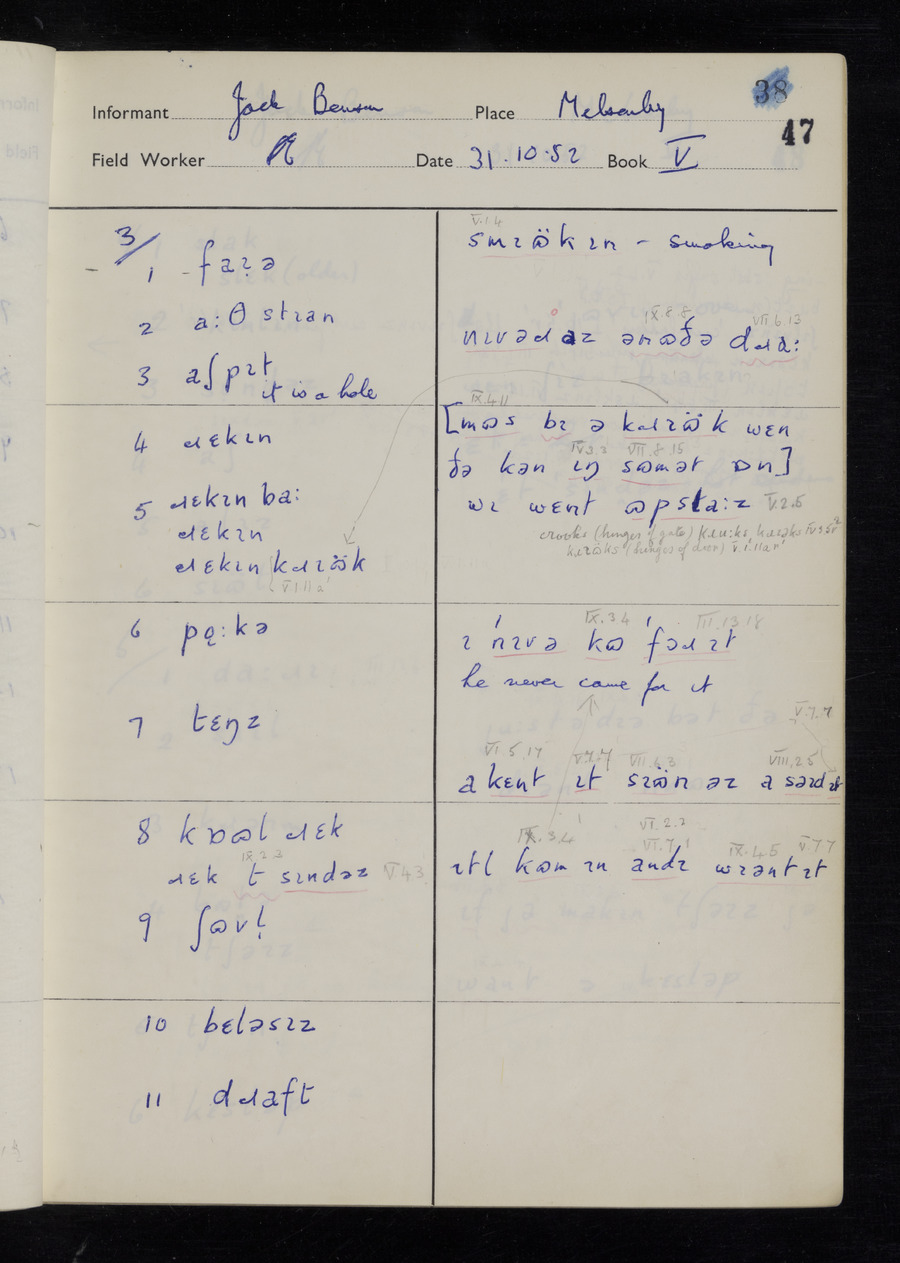 38
Informant Jack Benson Place Melsonby
47
Field Worker Date 31.10.52 Book V
3/
1 faɪə
2 a:θ stɪan
3 aʃpɪt
it is a hole
4 ɹɛkɪn
5 ɹɛkɪn ba:
ɹɛkɪn
ɹɛkɪn kɹɪök
V.1.11a
6 pǫ:kə
7 tɛŋz
8 kɒʊl ɹɛk
IX.2.3
ɹɛk t sɪndəz V.4.3
9 ʃʊvl̩
10 bɛləsɪz
11 dɹaft
V.1.4
smɪʊ̈kɪn – smoking
IX.8.8 VII.6.13
nɪvəɹ az ənʊðə dɹa:
IX.4.11
[mʊs bɪ ə kɹɪʊ̈k wɛn
IV.3.3 VII.8.15
ðə kən ɪŋ sʊmət ɒn]
wɪ wɛnt ʊpsta:z V.2.5
crooks (hinges of gate)
(hinges of door) V.1.11a
IX.3.4 VIII.13.18
ɪ nɪvə kʊ fəɹ ɪt
he never came for it
V.7.7
VI.5.17 V.7.7 VII.6.3 VIII.2.5
a kɛnt ɪt sɪʊ̈n əz a səɪd ɪt
IX.3.4 VI.2.2
VI.7.1 IX.4.5 V.7.7
ɪtl kʊm ɪn andɪ wɪənt ɪt